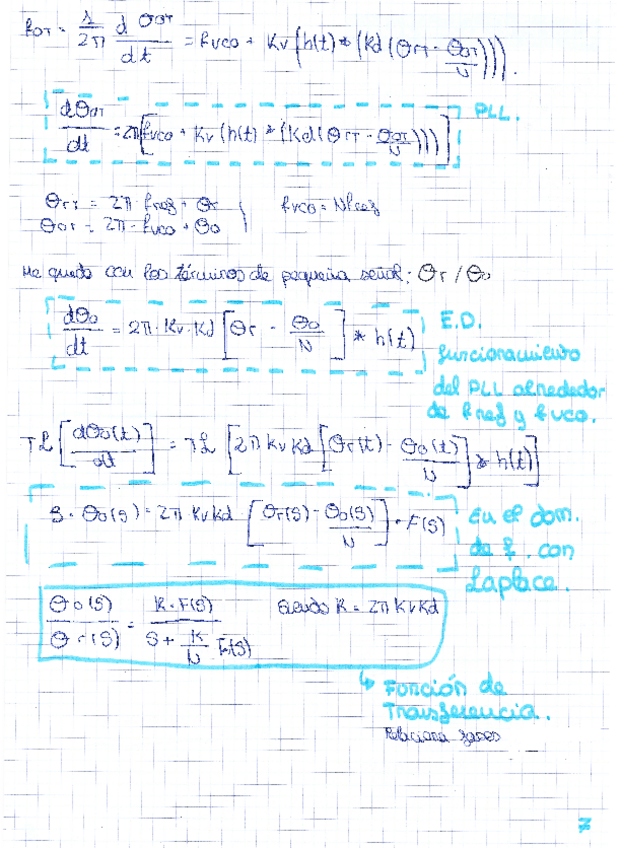 f_OT = 1/2π dθ_OT/dt = f_VCO + Kv(h(t) * (Kd(θ_rT - θ_OT/N))).
dθ_OT/dt = 2π[f_VCO + Kv(h(t) * (Kd(θ_rT - θ_OT/N)))] PLL.
θ_rT = 2π · f_ref + θr
θ_OT = 2π · f_VCO + θo
f_VCO = N f_ref
Me quedo con los términos de pequeña señal: θr / θo
dθo/dt = 2π · Kv · Kd [θr - θo/N] * h(t)
E.D.
funcionamiento
del PLL alrededor
de f ref y f vco.
TL[dθo(t)/dt] = TL[2π Kv Kd [θr(t) - θo(t)/N] * h(t)]
S · θo(s) = 2π KvKd [θr(s) - θo(s)/N] · F(s)
En el dom.
de f. con
Laplace.
θo(s)/θr(s) = K · F(s) / (S + K/N F(s)) siendo K = 2π KvKd
↳ Función de
Transferencia.
Relaciona fases
7